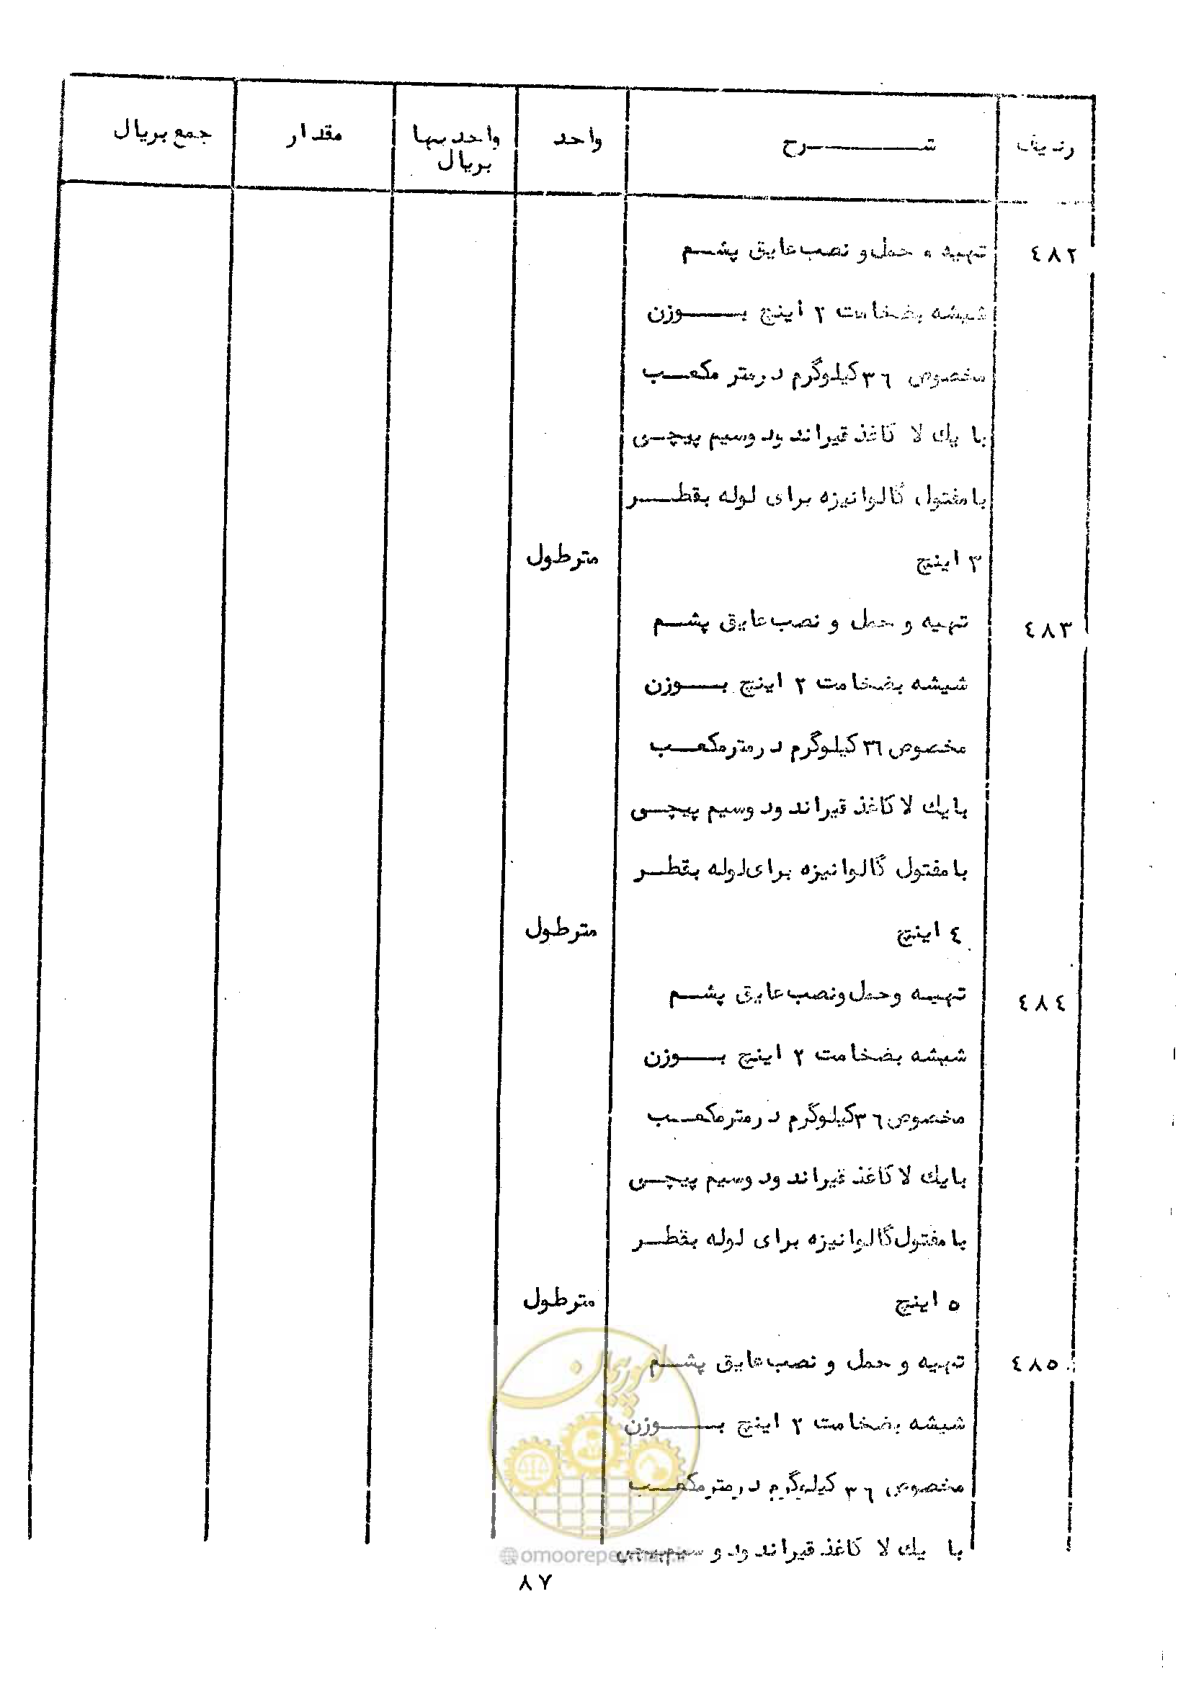 ردیف شرح واحد واحد بها مقدار جمع بریال
بریال
٤٨٢ تهیه و حمل و نصب عایق پشم
شیشه بضخامت ٢ اینچ بوزن
مخصوص ٣٦ کیلوگرم در متر مکعب
با یك لا کاغذ قیراندود و سیم پیچی
با مفتول گالوانیزه برای لوله بقطر
٣ اینچ مترطول
٤٨٣ تهیه و حمل و نصب عایق پشم
شیشه بضخامت ٢ اینچ بوزن
مخصوص ٣٦ کیلوگرم در متر مکعب
با یك لا کاغذ قیراندود و سیم پیچی
با مفتول گالوانیزه برای لوله بقطر
٤ اینچ مترطول
٤٨٤ تهیه و حمل و نصب عایق پشم
شیشه بضخامت ٢ اینچ بوزن
مخصوص ٣٦ کیلوگرم در متر مکعب
با یك لا کاغذ قیراندود و سیم پیچی
با مفتول گالوانیزه برای لوله بقطر
٥ اینچ مترطول
٤٨٥ تهیه و حمل و نصب عایق پشم
شیشه بضخامت ٢ اینچ بوزن
مخصوص ٣٦ کیلوگرم در متر مکعب
با یك لا کاغذ قیراندود و سیم پیچی
امور پیمان
@omoorepeyman.ir
٨٧